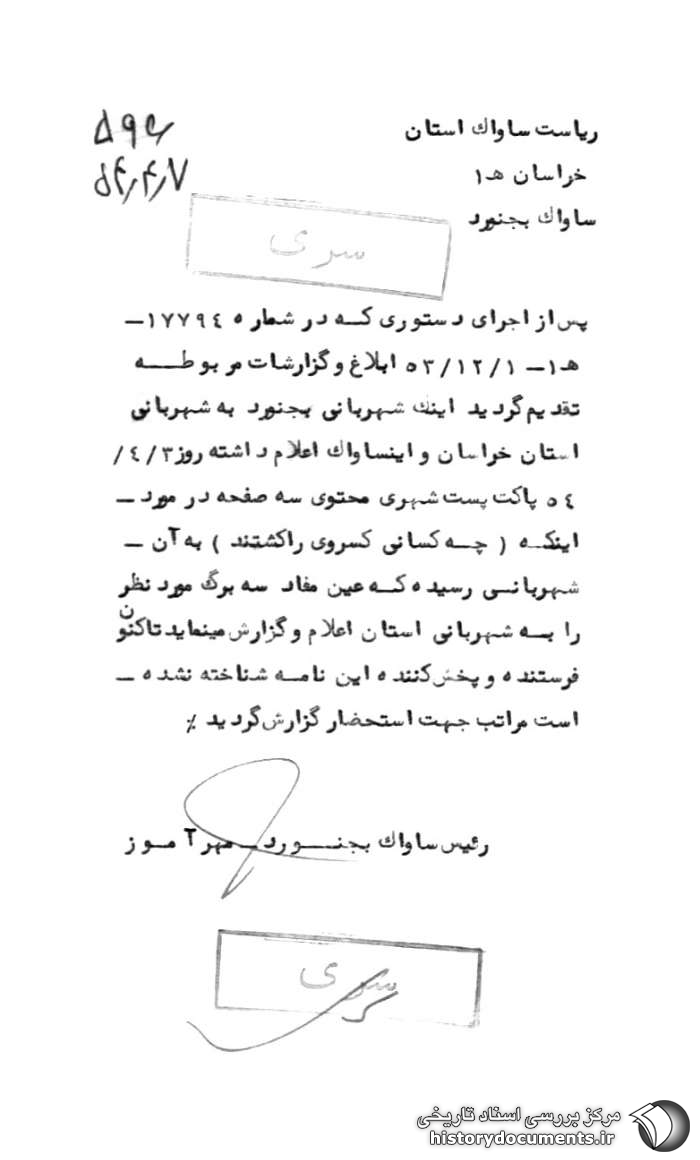 ریاست ساواك استان
خراسان هـ ۱
ساواك بجنورد
۵۴٫۴٫۷
سری
پس از اجرای دستوری كـه در شماره ۱۷۷۹٤ــ
هـ۱ــ ۵۳/۱۲/۱ ابلاغ و گزارشات مربوطــه
تقدیم گردید اینك شهربانی بجنورد به شهربانی
استان خراسان و اینساواك اعلام داشته روز ۴/۳/
۵٤ پاکت پست شهری محتوی سه صفحه در مورد ــ
اینكـه ( چـه كسانی كسروی راكشتند ) به آن ــ
شهربانـی رسیده كـه عین مفاد سه برگ مورد نظر
را بـه شهربانی استان اعلام و گزارش مینماید تاكنون
فرستنده و پخش كننده این نامـه شناخته نشده ــ
است مراتب جهت استحضار گزارش گردید ٪
رئیس ساواك بجنــورد ــ مهرآموز
سری
مرکز بررسی اسناد تاریخی
historydocuments.ir